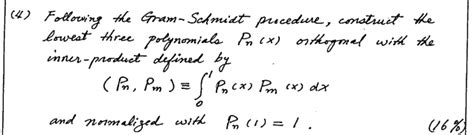 (4) Following the Gram-Schmidt procedure, construct the
lowest three polynomials Pn(x) orthogonal with the
inner-product defined by
(Pn, Pm) ≡ ∫₀¹ Pn(x) Pm(x) dx
and normalized with Pn(1) = 1. (16%)